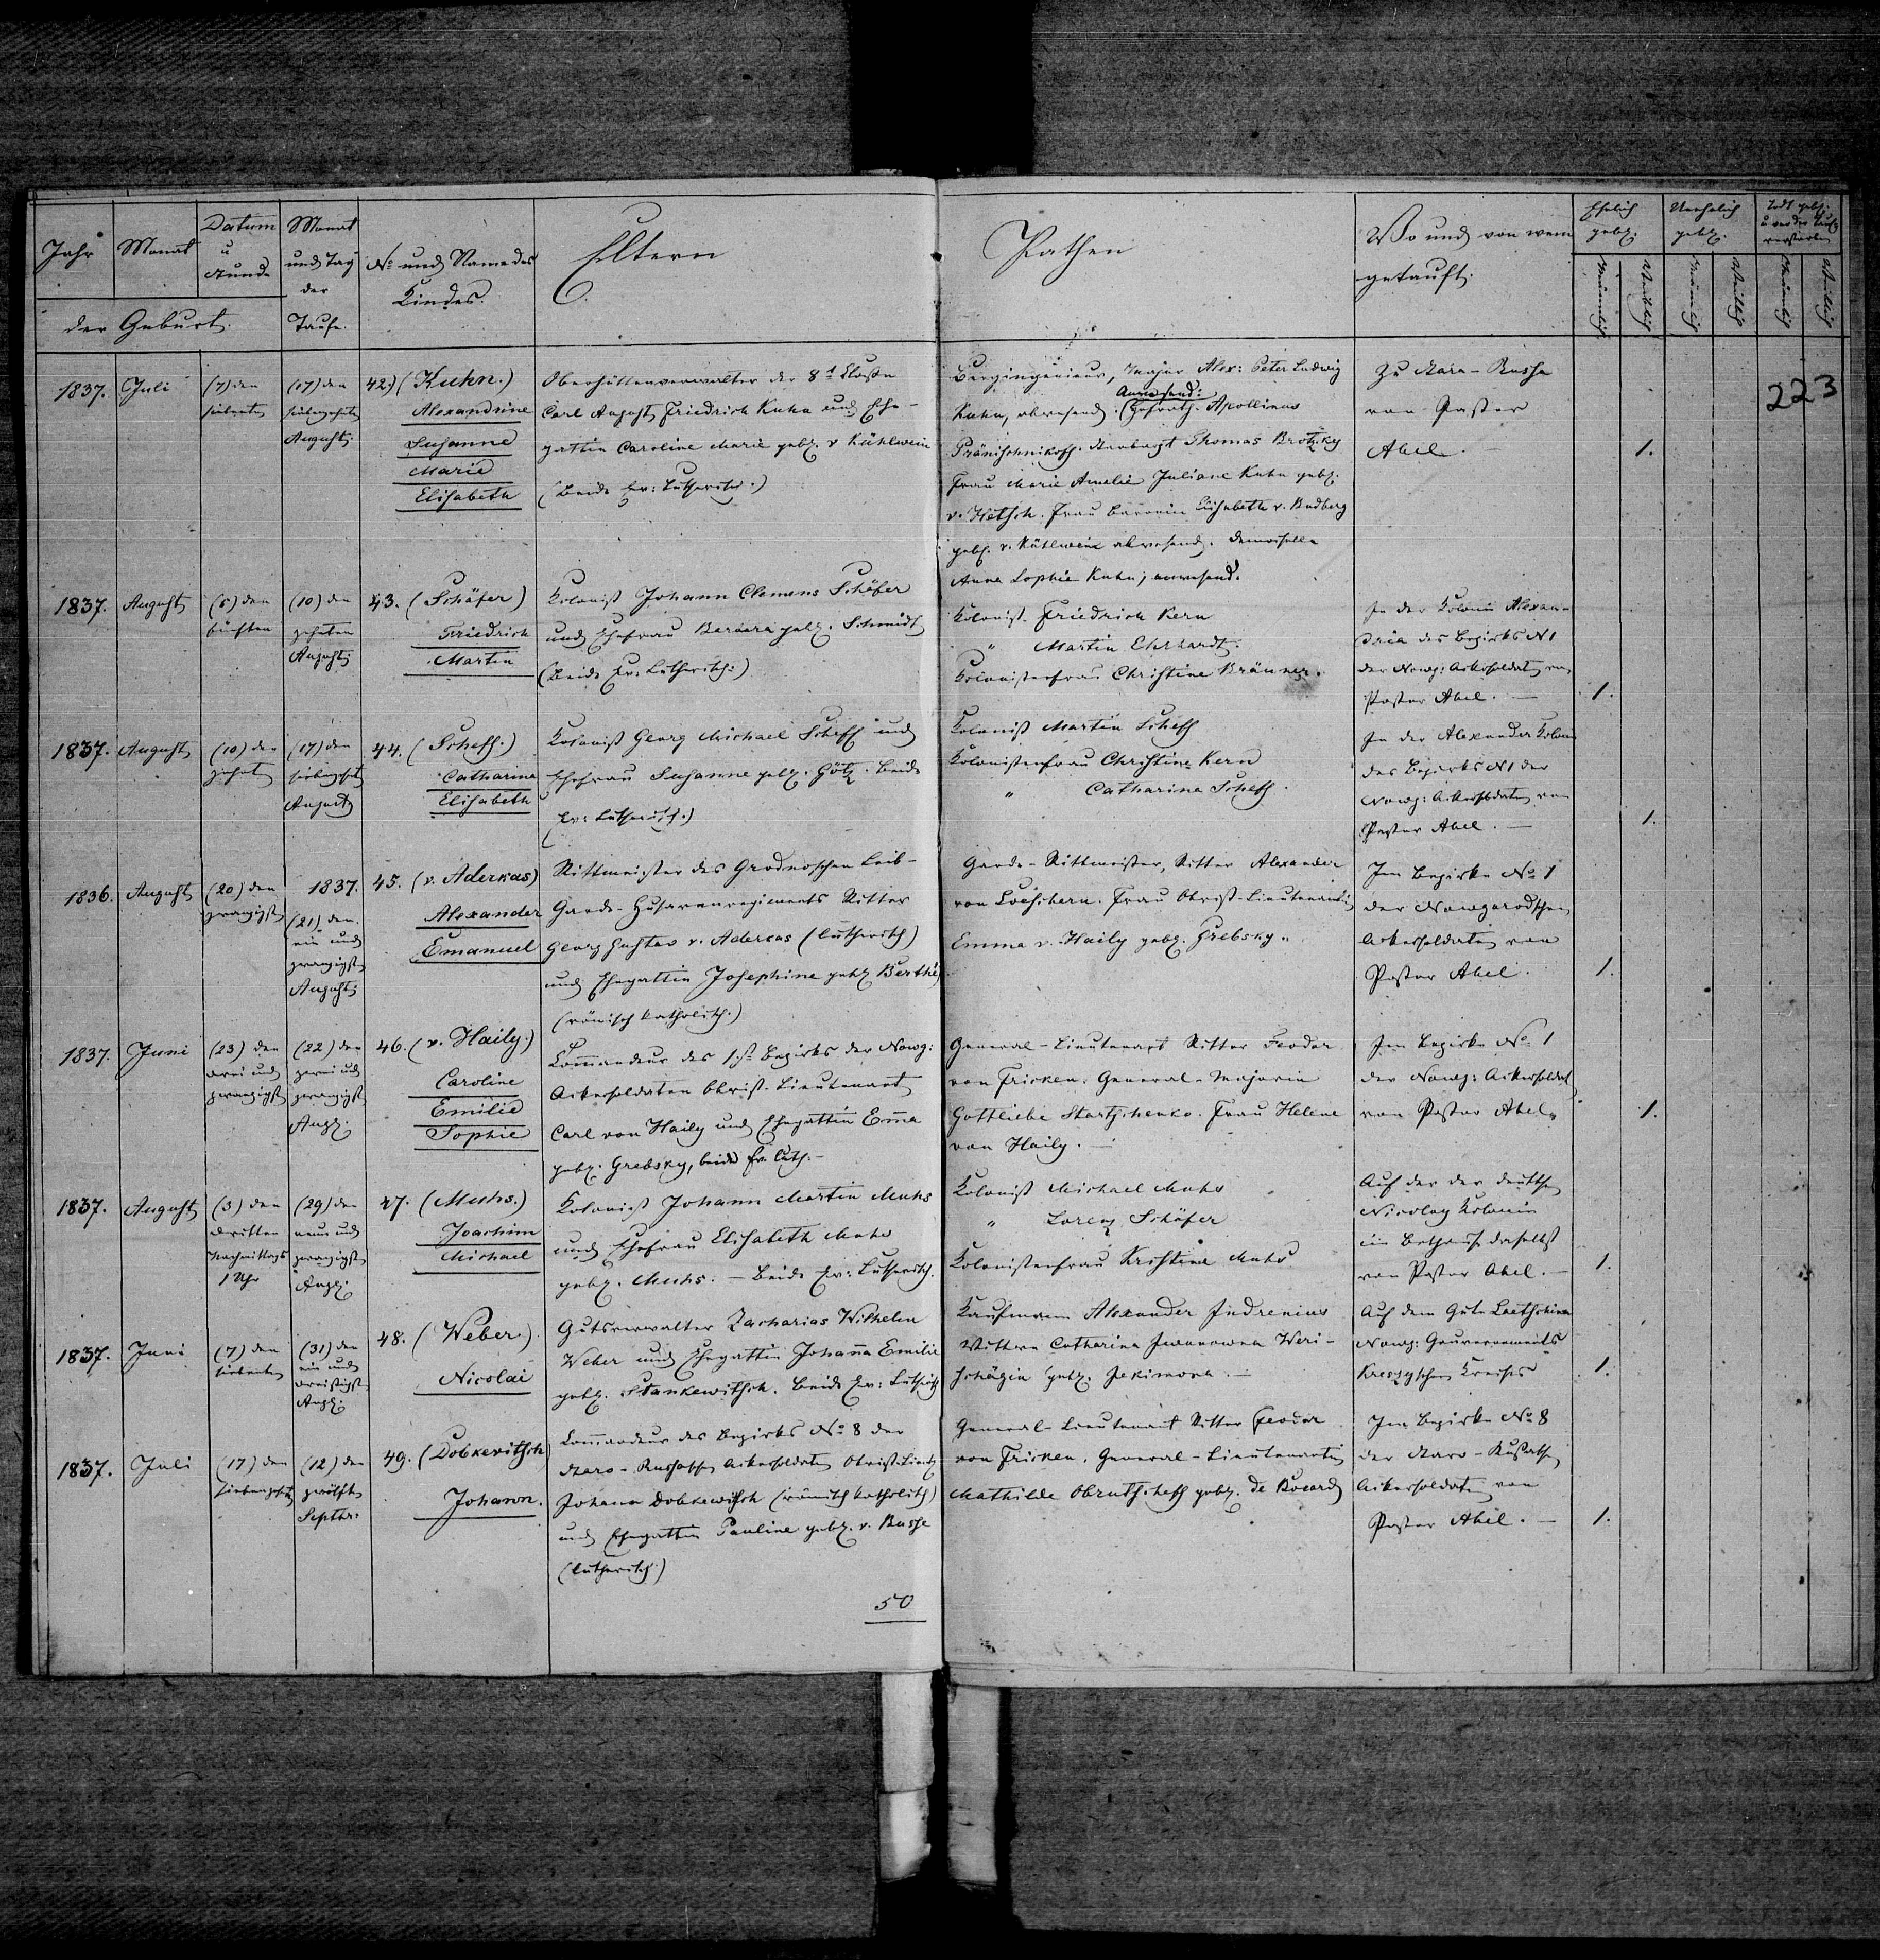 Jahr
Monat
Datum
u
Stunde
der Geburt.
Monat
und Tag
der
Taufe.
No und Name des
Kindes.
Eltern
Pathen
Wo und von wem
getauft.
Ehelich
geb.
Unehelich
geb.
Todt geb.
u vor der Taufe
verstorben
männlich
weiblich
männlich
weiblich
männlich
weiblich
223
1837. Juli
(7) den
siebenten
(17) den
siebzehnten
August
42.) (Kuhn.)
Alexandrine
Susanne
Marie
Elisabeth
Oberhüttenverwalter der 8t Classe
Carl August Friedrich Kuhn und Ehe-
gattin Caroline Marie geb. v Kühlwein
(Beide Ev: Lutherisch.)
Bergingenieur, Major Alex: Peter Ludwig
Anwesend:
Kuhn, abwesend. Apollinas
Pränischnikoff. Staabarzt Thomas Brotzky
Frau Marie Amelie Juliane Kuhn geb.
v. Hetsch. Frau Baronin Elisabeth v. Budberg
geb. v. Kühlwein abwesend. Demoiselle
Anna Sophie Kuhn, anwesend.
Zu Stara-Russa
von Pastor
Abel.
1.
1837. August
(5) den
fünften
(10) den
zehnten
August
43. (Schäfer)
Friedrich
Martin
Kolonist Johann Clemens Schäfer
und Ehefrau Barbara geb. Schmidt
(Beide Ev: Lutherisch.)
Kolonist Friedrich Kern
" Martin Ehrhardt.
Kolonistenfrau Christine Bränner.
In der Kolonie Alexan-
dria des Bezirks N1
der Nowg: Ackersoldaten von
Pastor Abel. —
1.
1837. August
(10) den
zehnten
(17) den
siebzehnten
August
44. (Scheff.)
Catharina
Elisabeth
Kolonist Georg Michael Scheff und
Ehefrau Susanne geb. Götz. Beide
Ev: Lutherisch.)
Kolonist Martin Scheff
Kolonistenfrau Christine Kern
" Catharina Scheff.
In der Alexander Kolonie
des Bezirks N1 der
Nowg: Ackersoldaten von
Pastor Abel. —
1.
1836. August
(20) den
zwanzigsten
1837.
(21) den
ein und
zwanzigsten
August
45. (v. Aderkas)
Alexander
Emanuel
Rittmeister des Grodnoschen Leib-
Garde-Husarenregiments Ritter
Georg Gustav v. Aderkas (lutherisch)
und Ehegattin Josephine geb. Berthé
(römisch katholisch.)
Garde-Rittmeister, Ritter Alexander
von Loeschern. Frau Obrist-Lieutenantin
Emma v. Haily geb. Grebsky.
Im Bezirke No 1
der Nowgorodschen
Ackersoldaten von
Pastor Abel.
1.
1837. Juni
(23) den
drei und
zwanzigsten
(22) den
zwei und
zwanzigsten
Aug.
46. (v. Haily.)
Caroline
Emilie
Sophie
Commandeur des 1st Bezirks der Nowg:
Ackersoldaten Obrist-Lieutenant
Carl von Haily und Ehegattin Em̄a
geb. Grebsky, beide Ev. Luth.
General-Lieutenant Ritter Feodor
von Fricken. General-Majorin
Gottliebe Startschenko. Frau Helene
von Haily. —
Im Bezirke No 1
der Nowg: Ackersoldaten
von Pastor Abel
1.
1837. August
(3) den
dritten
Nachmittags
1 Uhr
(29) den
neun und
zwanzigsten
Aug.
47. (Muhs.)
Joachim
Michael
Kolonist Johann Martin Muhs
und Ehefrau Elisabeth Muhs
geb. Muhs. — Beide Ev: Lutherisch.
Kolonist Michael Muhs
" Lorenz Schäfer
Kolonistenfrau Kristina Muhs
Auf der der deutschen
Nicolay Kolonie
im Bethause daselbst
von Pastor Abel. —
1.
1837. Juni
(7) den
siebenten
(31) den
ein und
dreißigsten
Aug.
48. (Weber)
Nicolai
Gutsverwalter Zacharias Wilhelm
Weber und Ehegattin Johan̄a Emilie
geb. Stankewitsch. Beide Ev: Lutherisch
Kaufmann Alexander Indrenius
Wittwe Catharina Iwanowna Weri-
schägin geb. Jekimova. —
Auf dem Gute Laetschina
Nowg: Gouvernements
Krestzyschen Kreises
1.
1837. Juli
(17) den
siebenzehnten
(12) den
zwölften
Septbr:
49. (Dobkevitsch)
Johann.
Commandeur des Bezirks No 8 der
Staro-Russischen Ackersoldaten Obrist Lieut
Johann Dobkewitsch (römisch katholisch)
und Ehegattin Pauline geb. v. Busse
(lutherisch.)
General-Lieutenant Ritter Feodor
von Fricken. General-Lieutenantin
Mathilde Obrutscheff geb. de Bocard
Im Bezirke No 8
der Staro-Russischen
Ackersoldaten von
Pastor Abel. —
1.
50